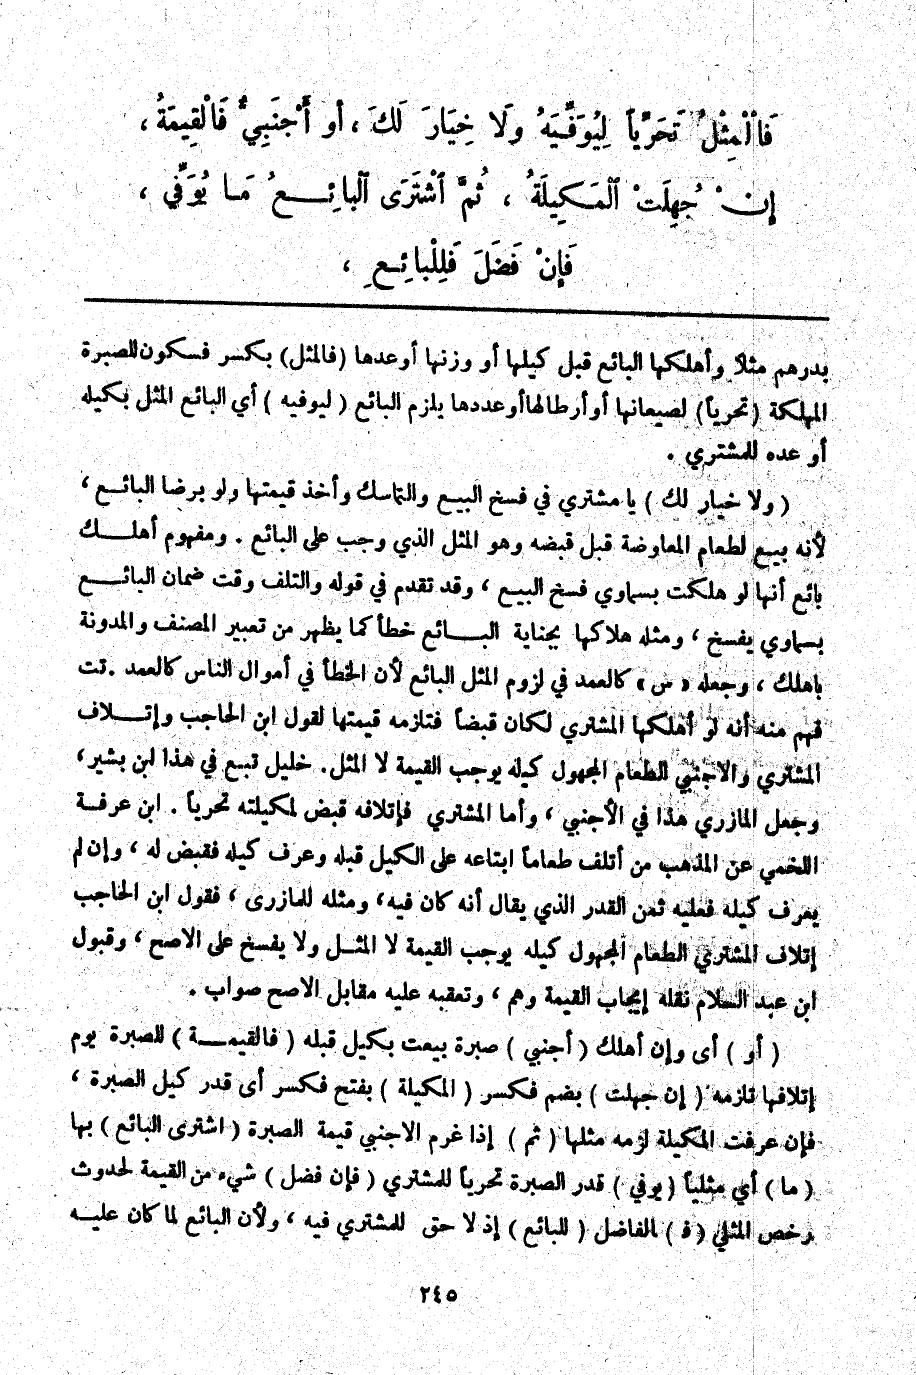 فَٱلْمِثْلُ تَحَرِّياً لِيُوَفِّيَهُ وَلَا خِيَارَ لَكَ ، أو أَجْنَبِيٌّ فَالْقِيمَةُ ،
إِنْ جُهِلَتْ ٱلْمَكِيلَةُ ، ثُمَّ ٱشْتَرَى ٱلْبائِعُ مَا يُوَفِّي ،
فَإِنْ فَضَلَ فَلِلْبائِعِ ،
بدرهم مثلاً وأهلكها البائع قبل كيلها أو وزنها أوعدها (فالمثل) بكسر فسكون للصبرة
المهلكة (تحرياً) لصيعانها أوأرطالهاأوعددها يلزم البائع ( ليوفيه ) أي البائع المثل بكيله
أو عده للمشتري .
( ولا خيار لك ) يا مشتري في فسخ البيع والتماسك وأخذ قيمتها ولو برضا البائع ،
لأنه بيع لطعام المعاوضة قبل قبضه وهو المثل الذي وجب على البائع . ومفهوم أهلك
بائع أنها لو هلكت بسماوي فسخ البيع ، وقد تقدم في قوله والتلف وقت ضمان البائع
بسماوي يفسخ ، ومثله هلاكها بجناية البائع خطأ كما يظهر من تعبير المصنف والمدونة
باهلك ، وجعله « س » كالعمد في لزوم المثل البائع لأن الخطأ في أموال الناس كالعمد .تت
فهم منه أنه لو أهلكها المشتري لكان قبضاً فتلزمه قيمتها لقول ابن الحاجب وإتلاف
المشتري والاجنبي الطعام المجهول كيله يوجب القيمة لا المثل. خليل تبع في هذا ابن بشير،
وجعل المازري هذا في الأجنبي ، وأما المشتري فإتلافه قبض لمكيلته تحرياً . ابن عرفة
اللخمي عن المذهب من أتلف طعاماً ابتاعه على الكيل قبله وعرف كيله فقبض له ، وإن لم
يعرف كيله فعليه ثمن القدر الذي يقال أنه كان فيه، ومثله للمازرى ، فقول ابن الحاجب
إتلاف المشتري الطعام المجهول كيله يوجب القيمة لا المثل ولا يفسخ على الاصح ، وقبول
ابن عبد السلام نقله إيجاب القيمة وهم ، وتعقبه عليه مقابل الاصح صواب .
( أو ) أى وإن أهلك ( أجنبي ) صبرة بيعت بكيل قبله ( فالقيمة ) للصبرة يوم
إتلافها تلزمه ( إن جهلت ) بضم فكسر ( المكيلة ) بفتح فكسر أى قدر كيل الصبرة ،
فإن عرفت المكيلة لزمه مثلها ( ثم ) إذا غرم الاجنبي قيمة الصبرة ( اشترى البائع ) بها
( ما ) أي مثلياً ( يوفي ) قدر الصبرة تحرياً للمشتري ( فإن فضل ) شيء من القيمة لحدوث
رخص المثلي ( فـ ) الفاضل ( للبائع ) إذ لا حق للمشتري فيه ، ولأن البائع لما كان عليه
٢٤٥